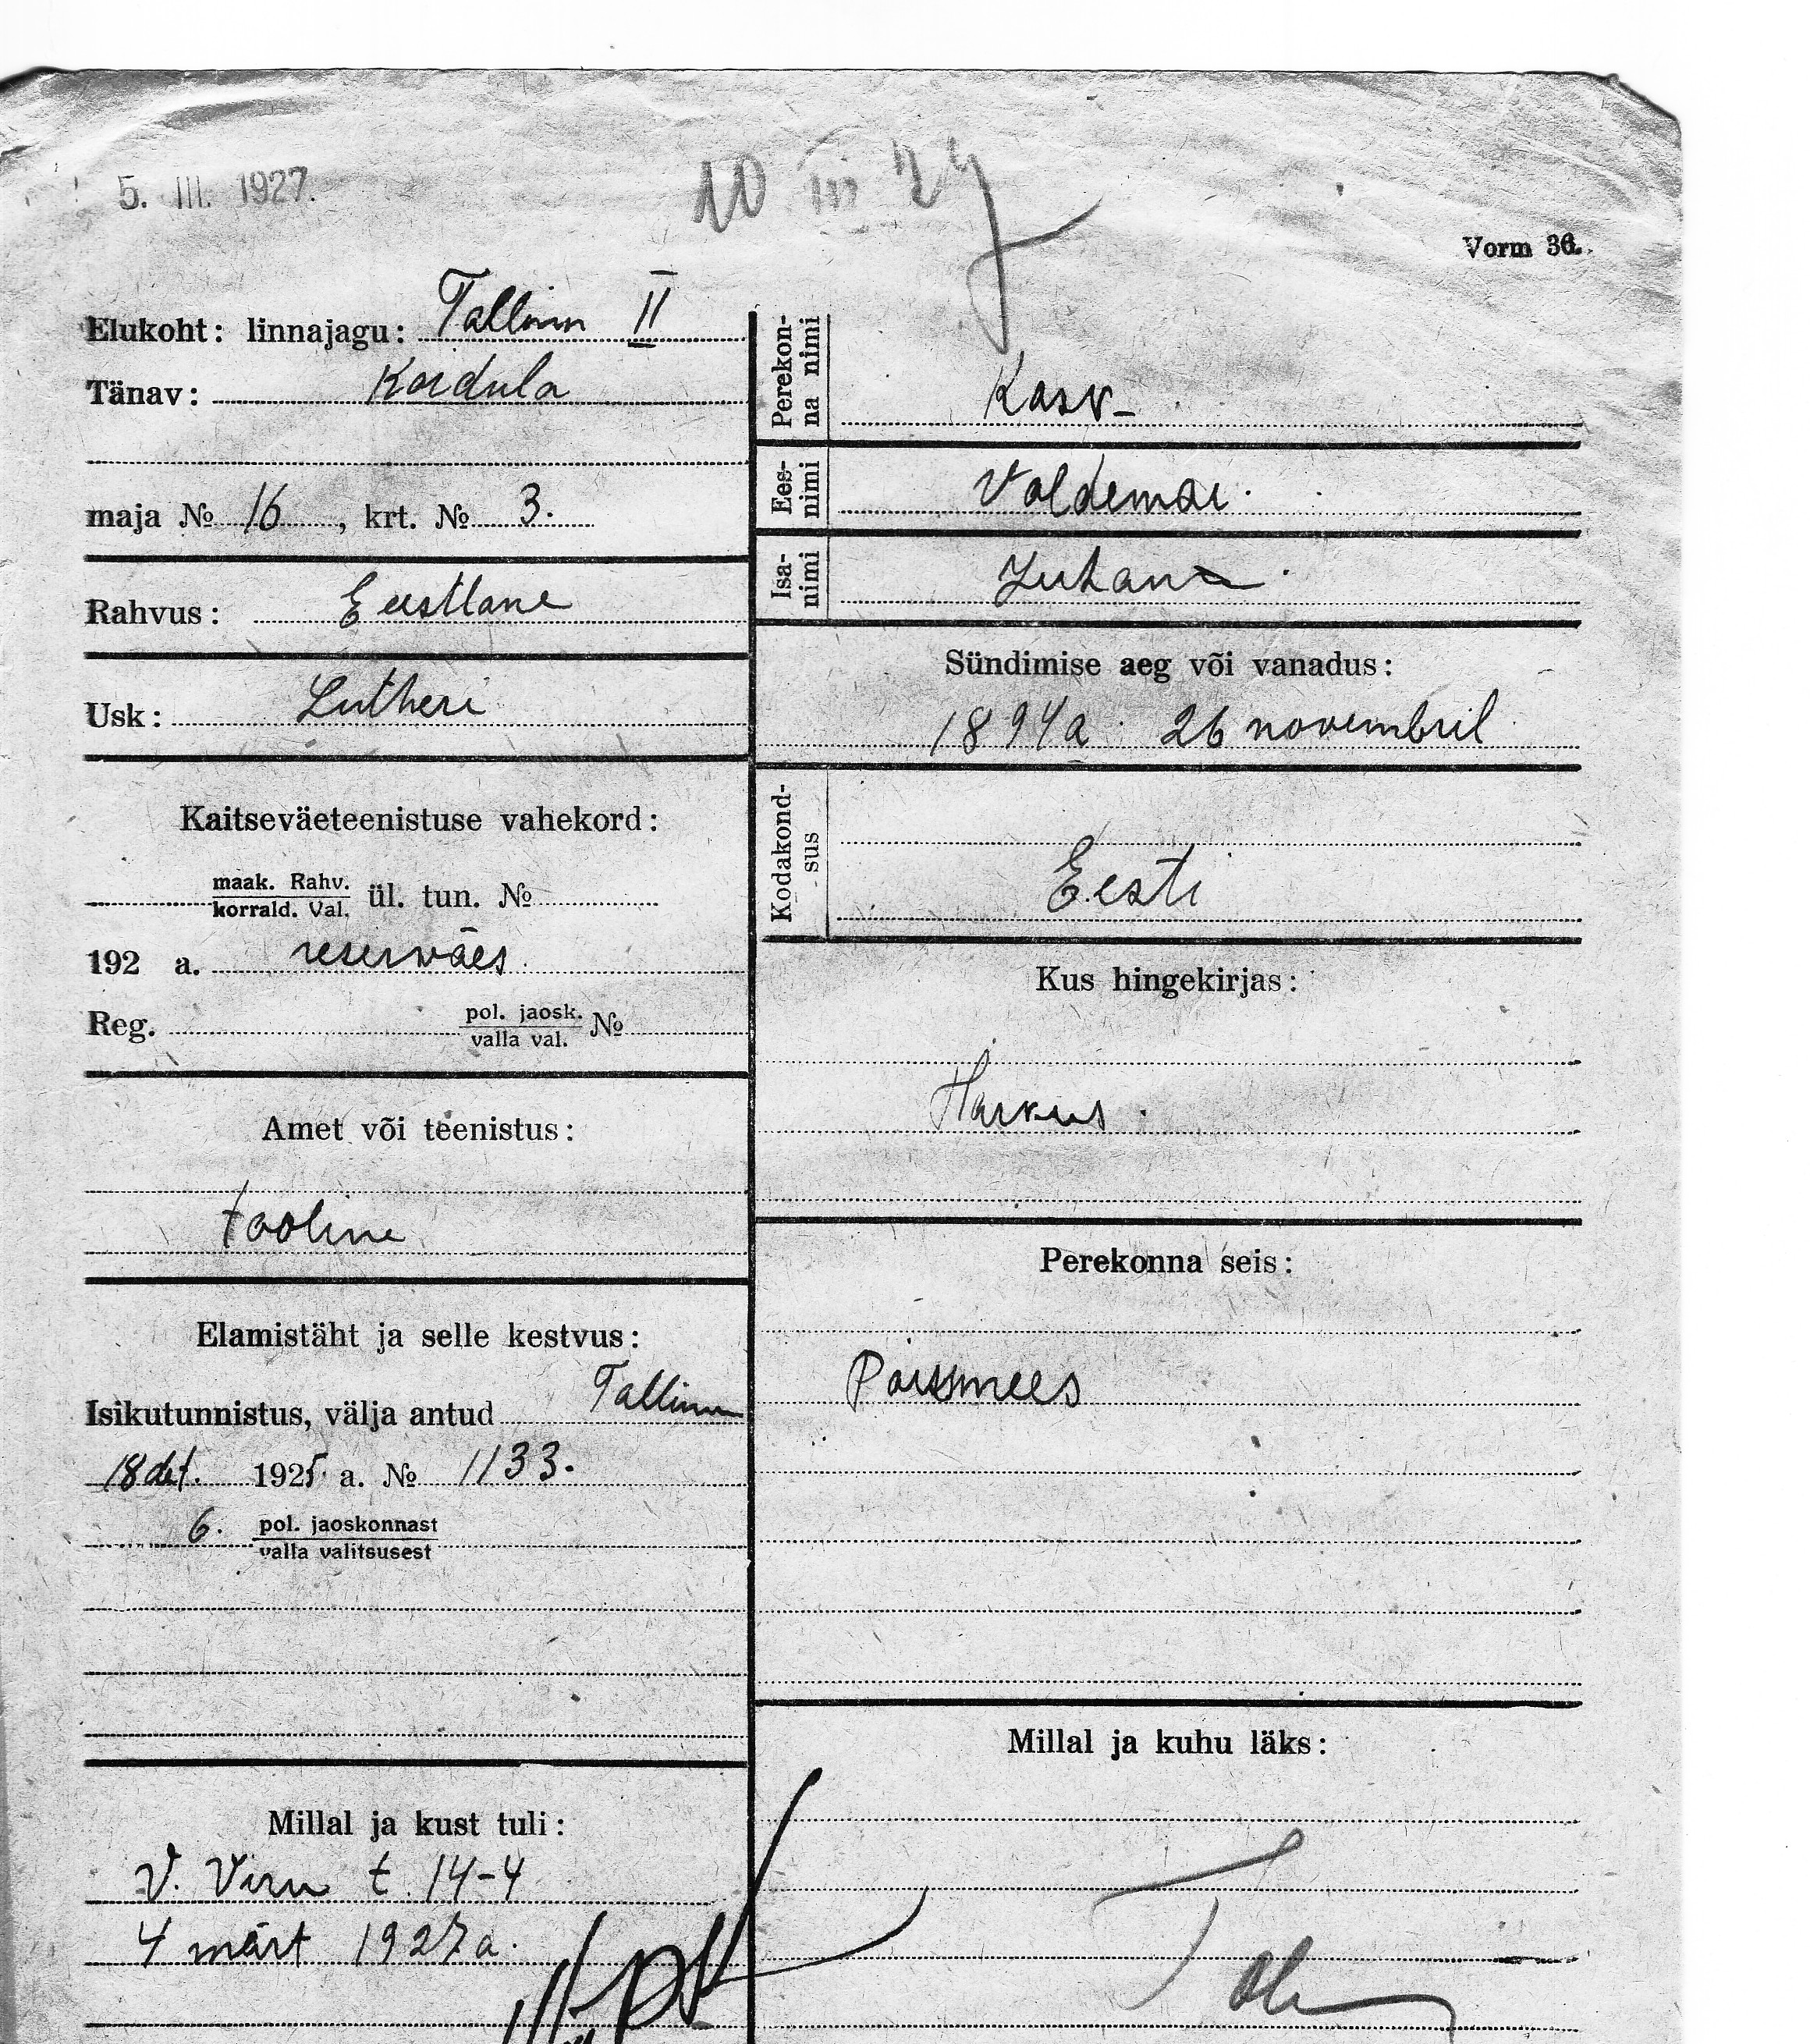 5. III. 1927.
10 III 27
Vorm 36.
Elukoht: linnajagu: Tallinn II
Tänav: Koidula
maja № 16, krt. № 3.
Rahvus: Eestlane
Usk: Lutheri
Kaitseväeteenistuse vahekord:
maak. Rahv.
korrald. Val. ül. tun. №
192 a. reservväes
Reg. pol. jaosk. №
valla val.
Amet või teenistus:
tööline
Elamistäht ja selle kestvus:
Isikutunnistus, välja antud Tallinn
18 det. 1925. a. № 1133.
6. pol. jaoskonnast
valla valitsusest
Millal ja kust tuli:
V. Viru t. 14-4
4 märt 1927 a.
Perekon-
na nimi
Kask
Ees-
nimi
Voldemar.
Isa-
nimi
Juhan
Sündimise aeg või vanadus:
1894 a. 26 novembril
Kodakond-
sus
Eesti
Kus hingekirjas:
Harkus.
Perekonna seis:
Poissmees
Millal ja kuhu läks: